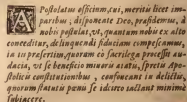 APostolatus officium, cui, meritis licet im-
paribus, disponente Deo, præsidemus, à
nobis postulat, vt, quantum nobis ex alto
conceditur, delinquendi fiduciam compescamus,
in ijs præsertim, quorum eo facilegia processit au-
dacia, vt se beneficio muniri aiāt, spretis Apo-
stolicis constitutionibus, confoueant in delictis,
quorum statuti panu se idcirco iactant minime
subiacere.